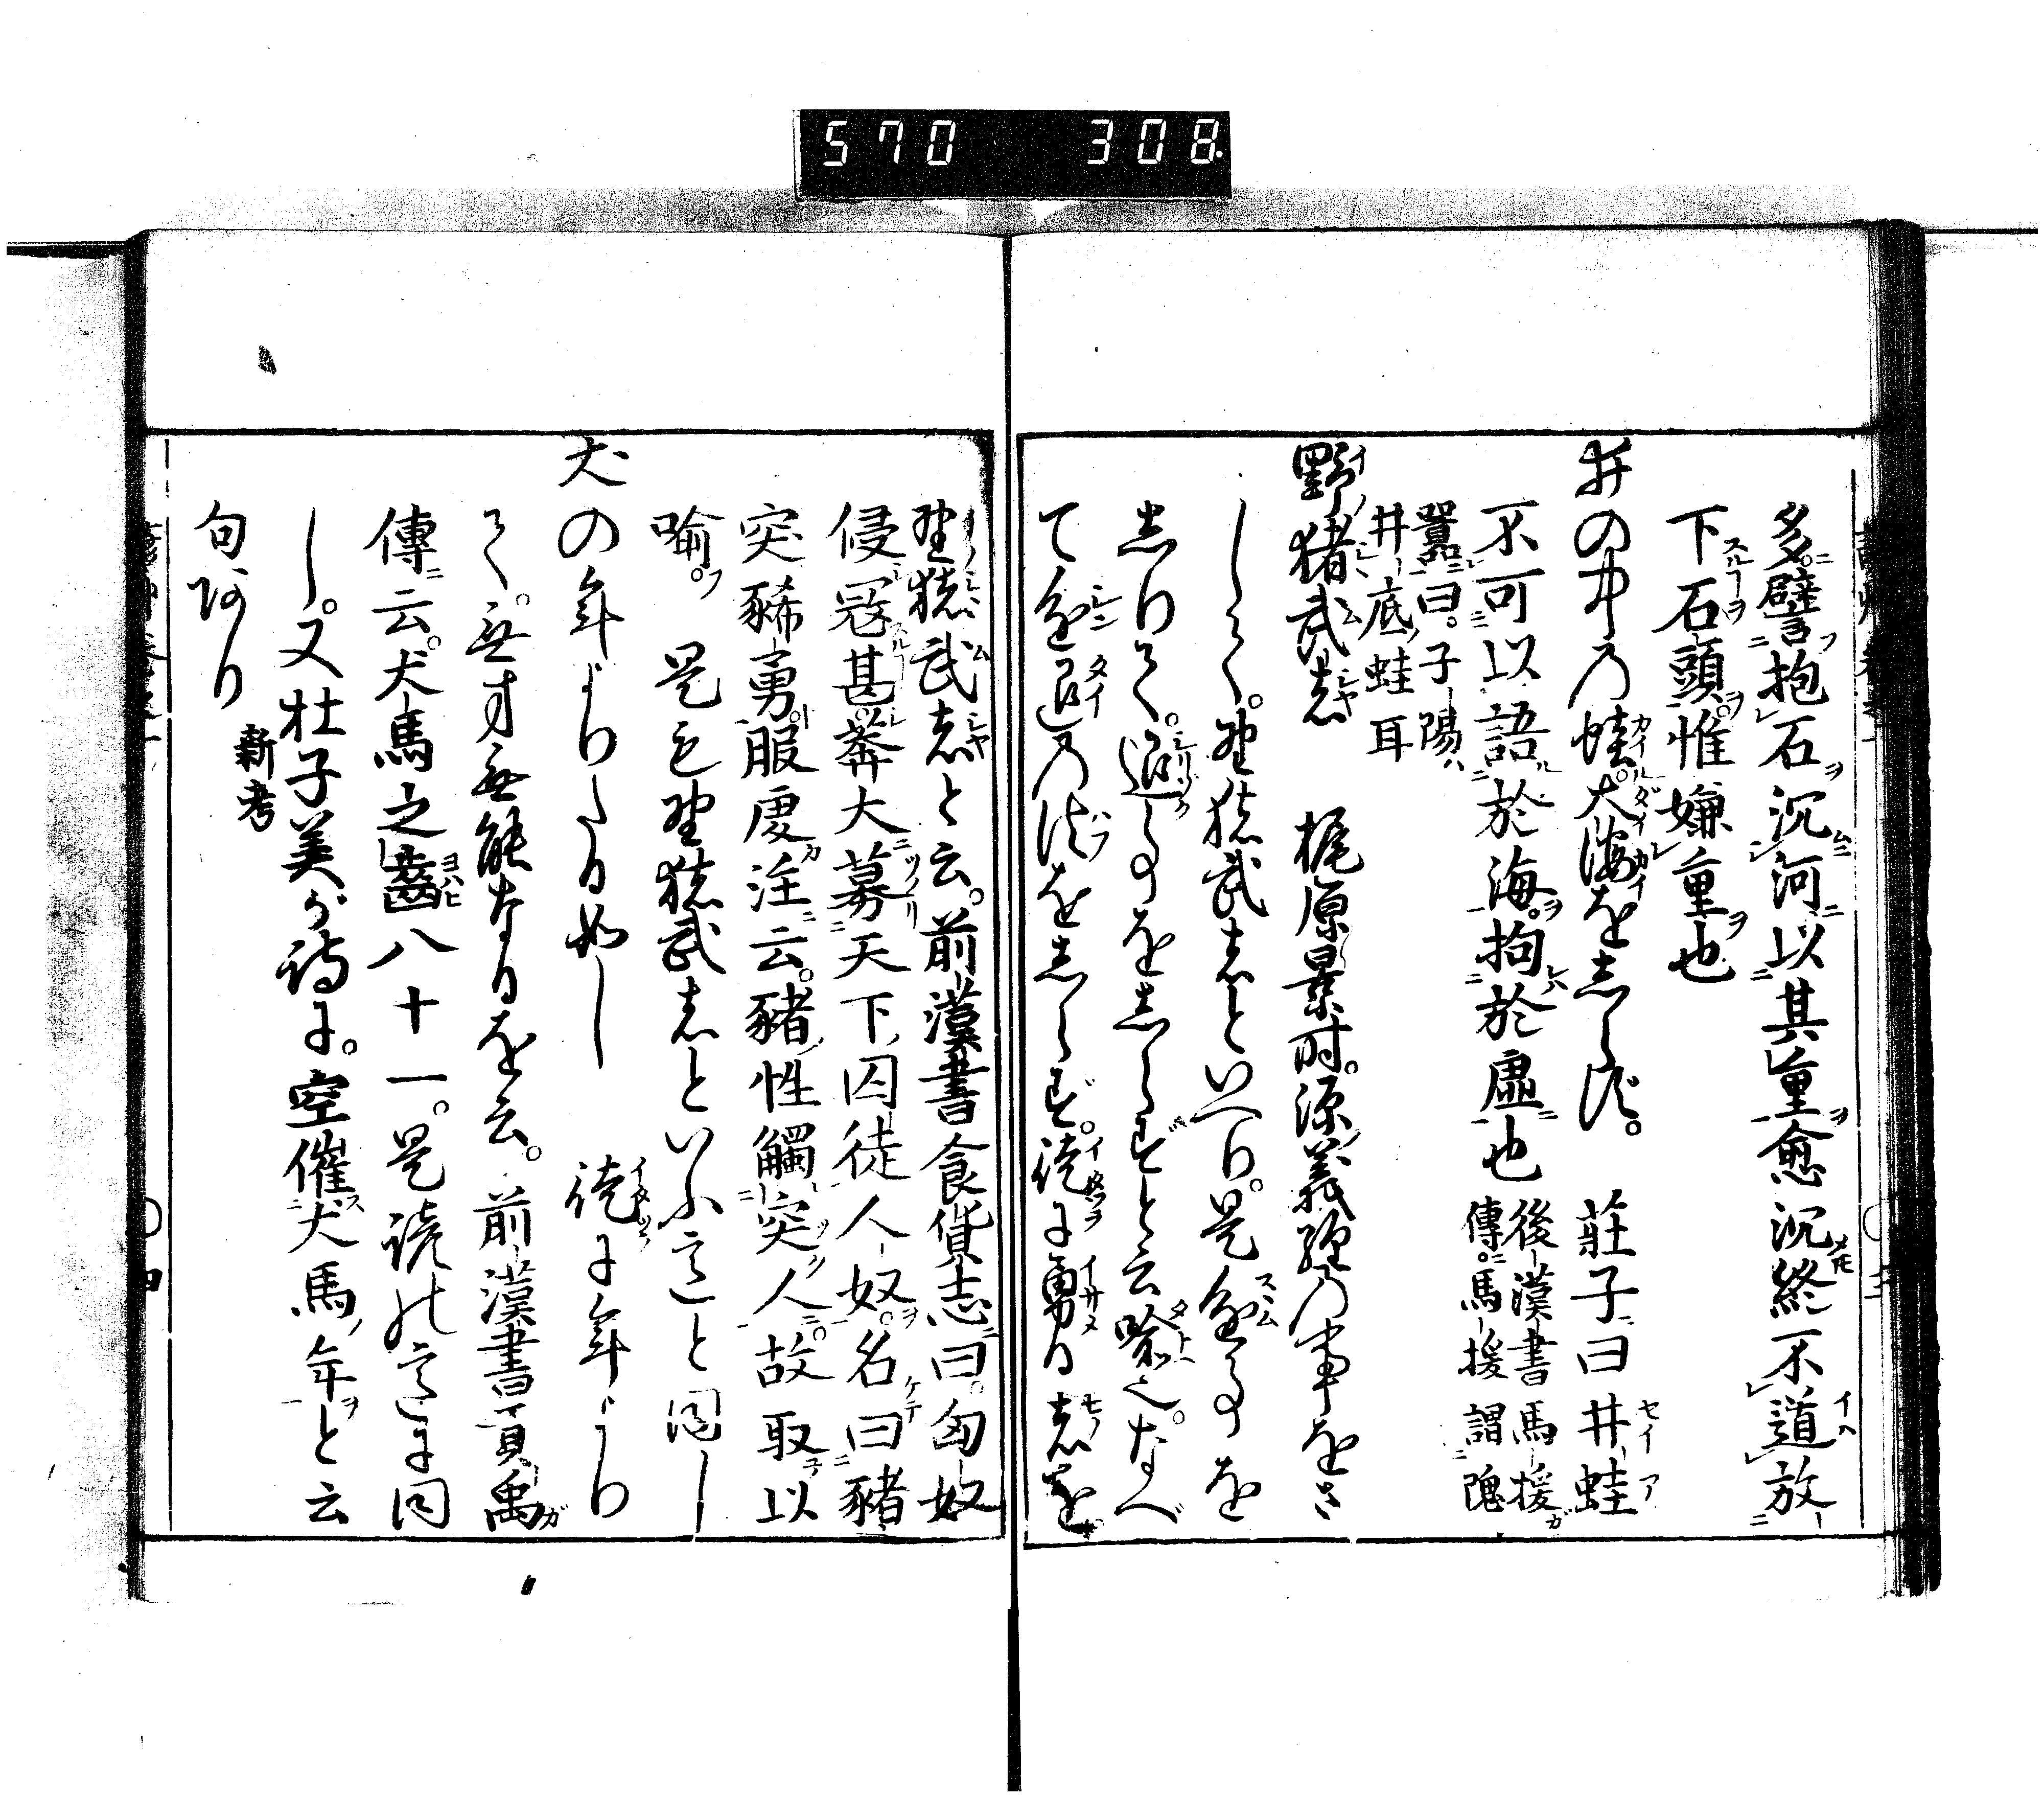 570 308
多譬抱石沉河以其重愈沉終不道放
下石頭惟嫌重也
井の中の蛙大海をしらず。 莊子曰井蛙
不可以語於海拘於虛也 後漢書馬援
傳馬援謂隗
囂曰。子陽
井底蛙耳
野猪武者 梶原景時。源義經の事をさ
して。野猪武者といへり。是進事を
しりて。退くことをしらずと云喩也。なべ
て進退の法をしらず。徒に勇る者を
野猪武者と云。前漢書食貨志曰。匈奴
侵冦甚。莽大募天下囚徒人奴。名曰豬
突豨勇。服虔注云。豬性觸突人。故取以
喻。 是も野猪武者といふこゝろと同し
犬の年よりたる如し 徒に年より
て。無才無能なるを云。前漢書貢禹
傳云。犬馬之齒八十一。是諺のこゝろに同
し。又杜子美が詩に。空催犬馬年と云
句阿り 新考
四